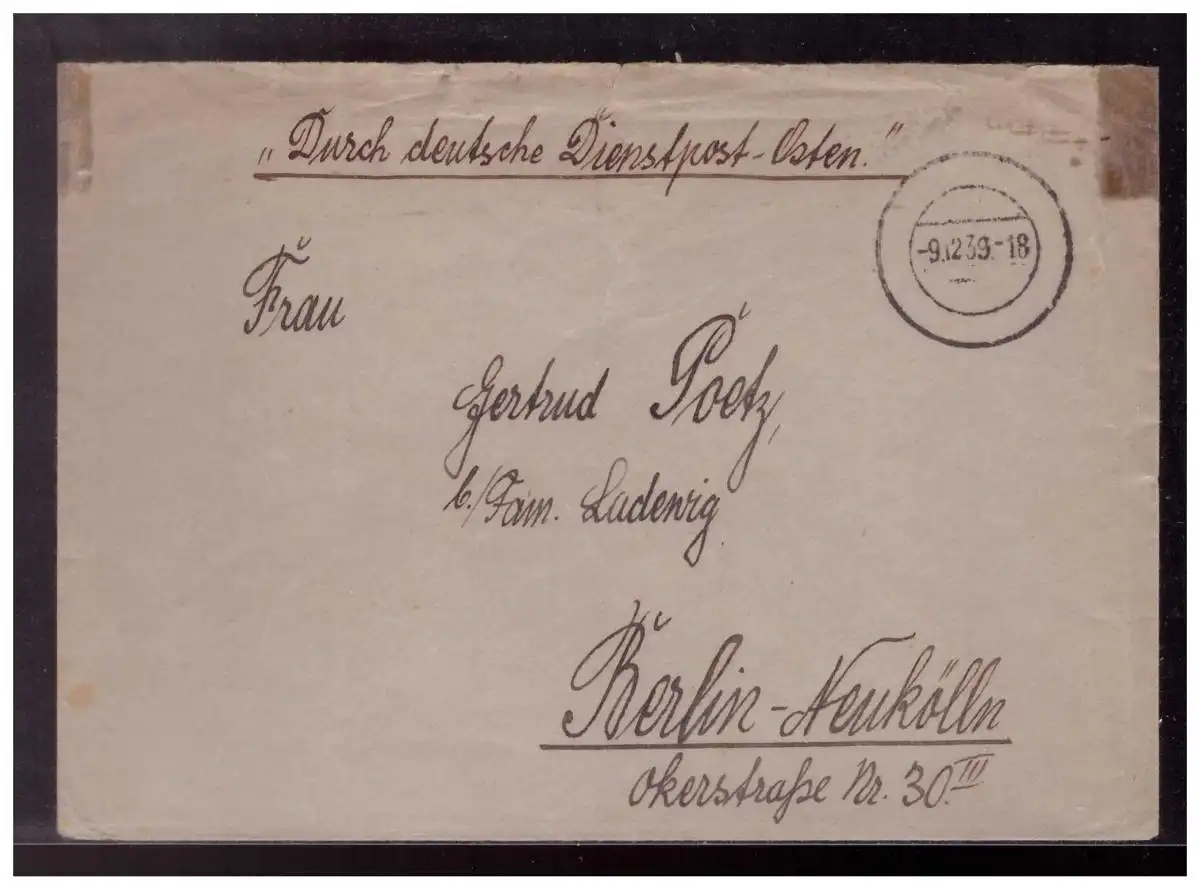 „Durch deutsche Dienstpost-Osten."
-9.12.39.-18
Frau
Gertrud Poetz,
b./Fam. Ludewig
Berlin-Neukölln
Okerstraße Nr. 30.III